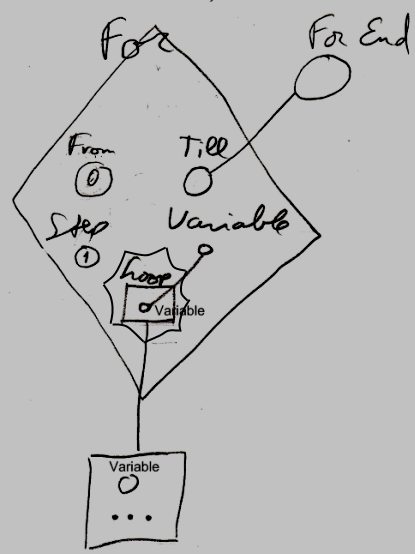 For
For End
From
Till
0
Step
Variable
1
Loop
Variable
Variable
...